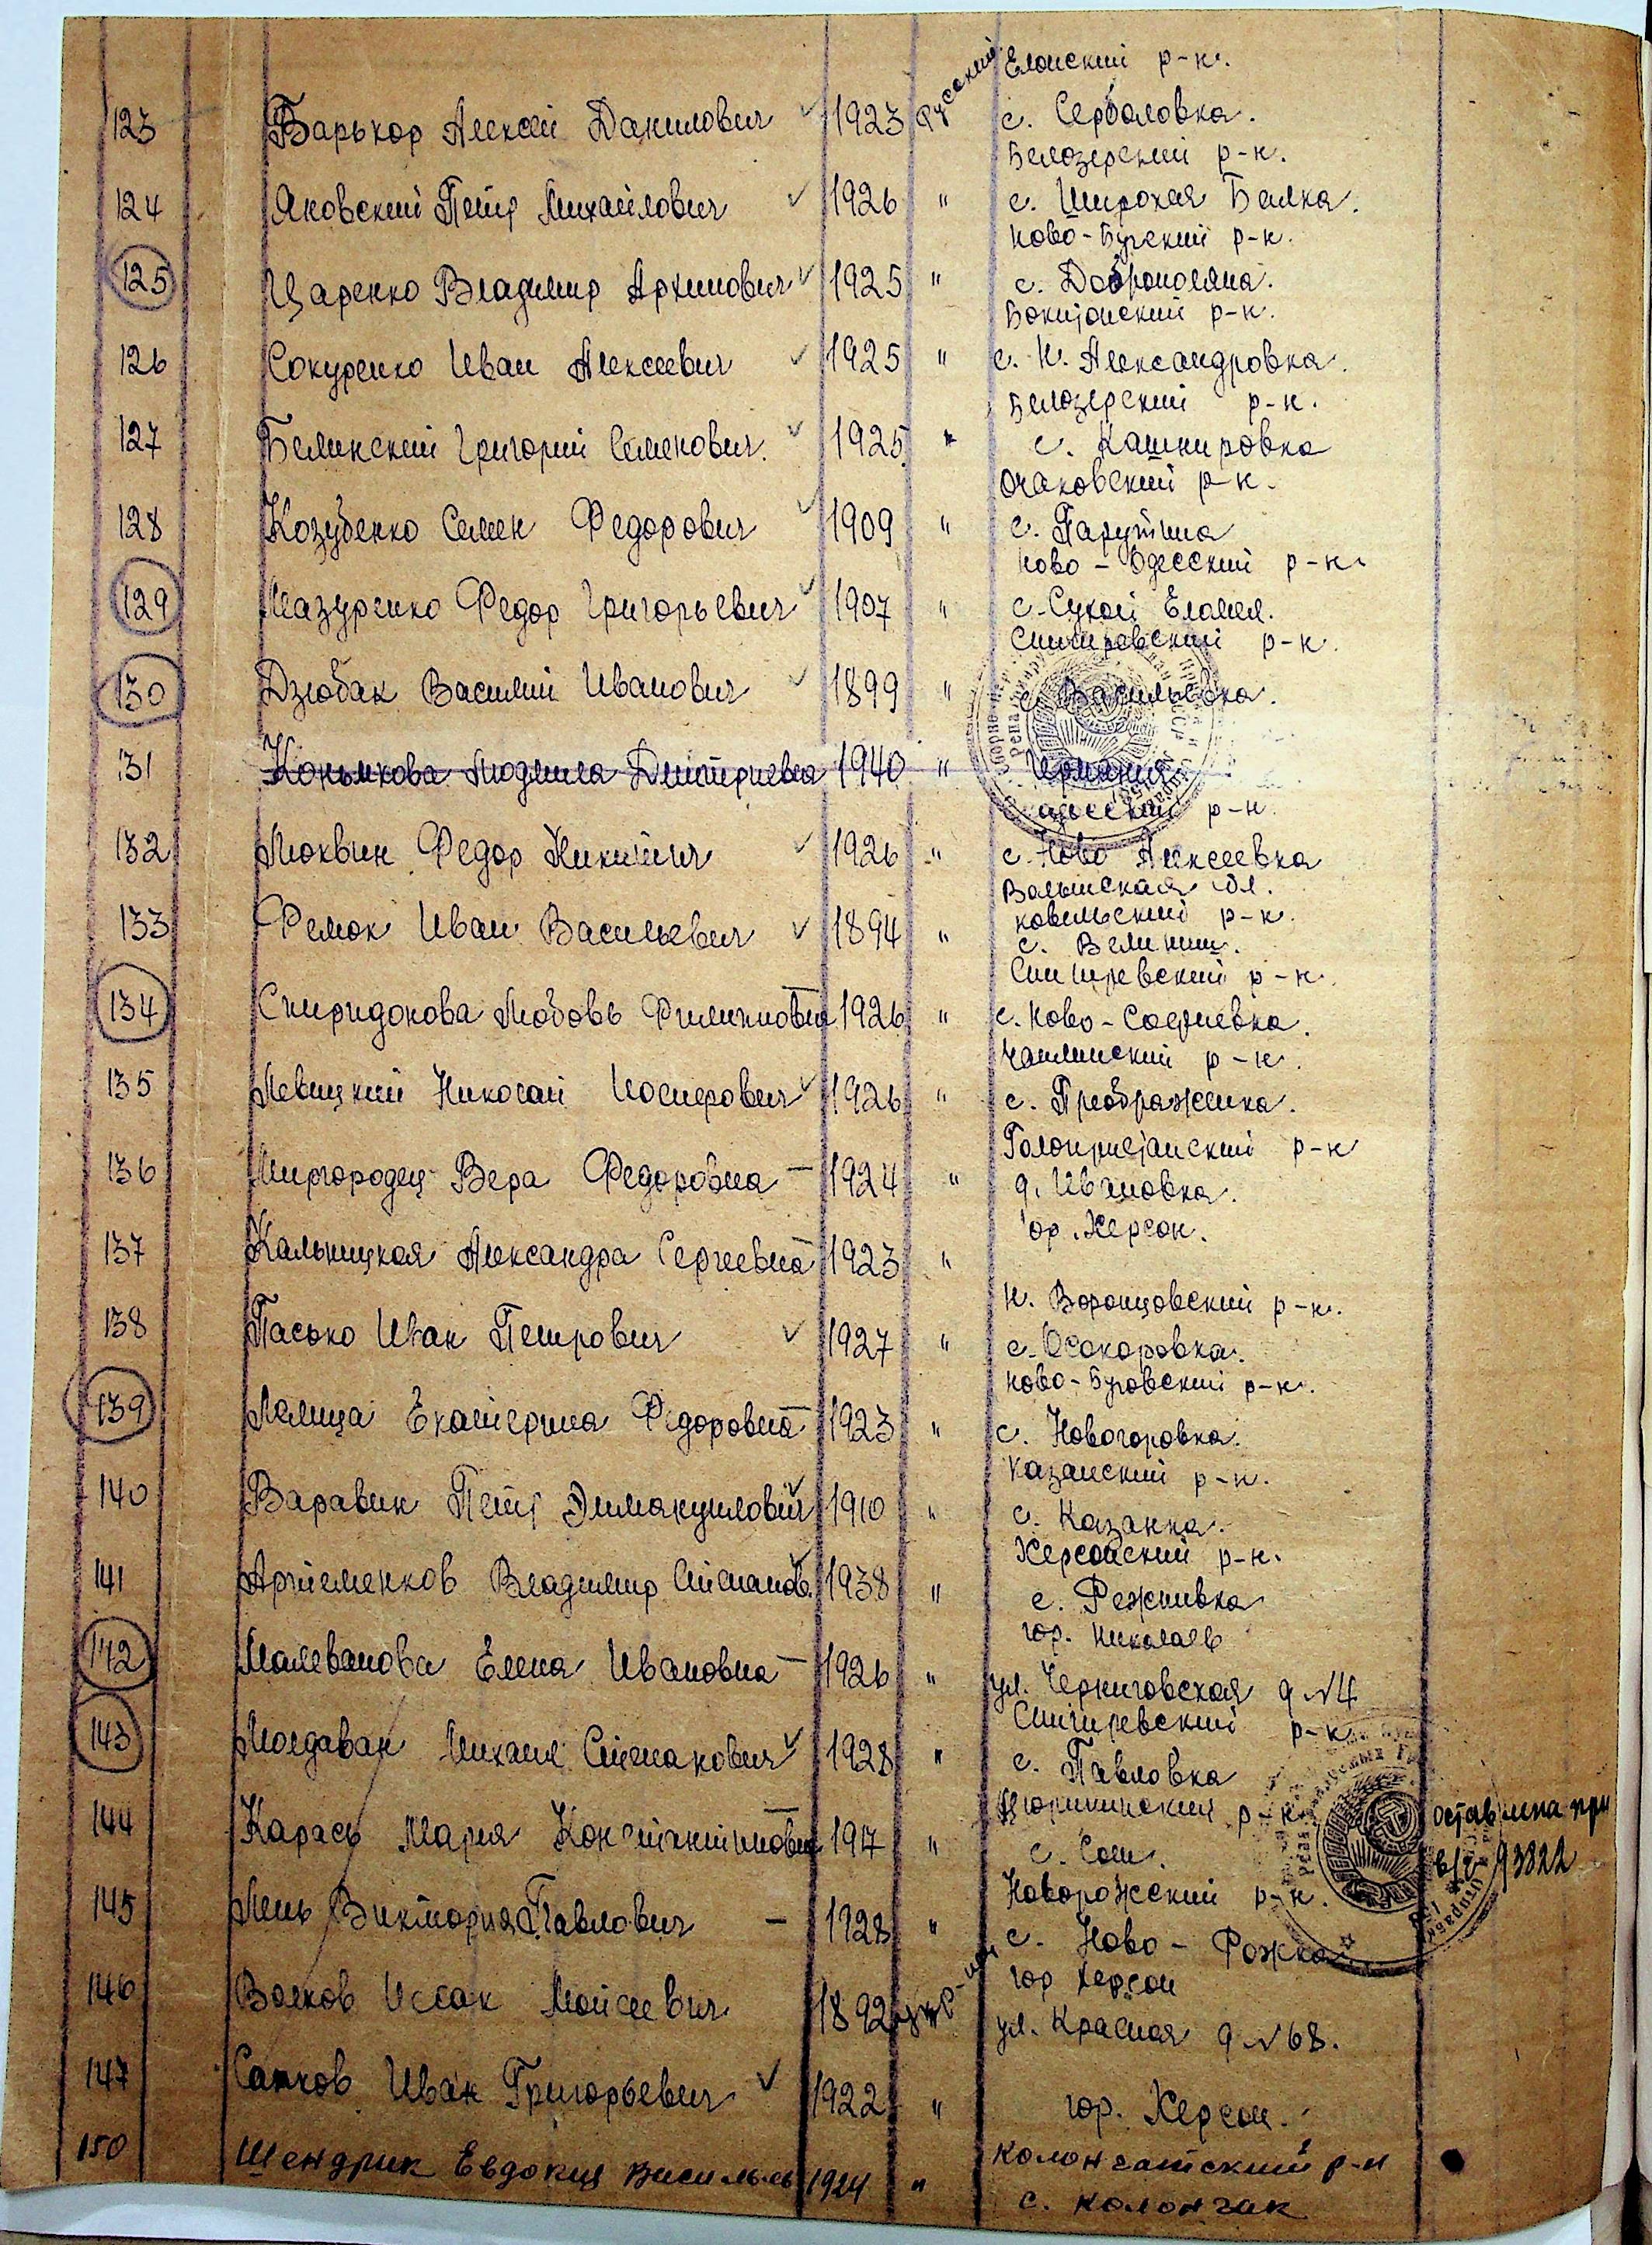 Еланский р-н.
123 Барьхор Алексей Данилович 1923 Русский с. Сербаловка.
Белозерский р-н.
124 Яновский Петр Михайлович 1926 " с. Широкая Балка.
Ново-Бугский р-н.
125 Царенко Владимир Архипович 1925 " с. Доброполяна.
р-н.
126 Сокуренко Иван Алексеевич 1925 " с. Н. Александровка.
Белозерский р-н.
127 Белинский Григорий Семенович. 1925 " с. Кашкировка
Очаковский р-н.
128 Козубенко Семен Федорович 1909 " с. Парутина
Ново-Одесский р-н.
129 Мазуренко Федор Григорьевич 1907 " с. Сухой Еланец.
Снигиревский р-н.
130 Дзюбак Василий Иванович 1899 " с. Васильевка.
131 Конькова Людмила Дмитриевна 1940 " Германия
р-н
132 Люквин Федор Никитич 1926 " с. Ново Алексеевка
Волынская обл.
ковельский р-н.
133 Фелюк Иван Васильевич 1894 " с. Велички.
Снигиревский р-н.
134 Спиридонова Любовь Филипповна 1926 " с. Ново-Софиевка.
Чаплинский р-н.
135 Левицкий Николай Иосифович 1926 " с. Преображенка.
Голопристанский р-н
136 Миргородец Вера Федоровна 1924 " д. Ивановка.
гор. Херсон.
137 Кальницкая Александра Сергеевна 1923 "
Н. Воронцовский р-н.
138 Пасько Иван Петрович 1927 " с. Осокоровка.
Ново-Буговский р-н.
139 Лялица Екатерина Федоровна 1923 " с. Новогоровка.
Казанский р-н.
140 Варавин Петр Эммануилович 1910 " с. Казанка.
Херсонский р-н.
141 Артеменков Владимир Степанов. 1938 " с. Режнивка
гор. Николаев
142 Малеванова Елена Ивановна 1926 " ул. Черниговская д №4
Снигиревский р-н
143 Молдаван Михаил Степанович 1928 " с. Павловка
р-н
144 Карась Мария Константиновна 1917 " с. оставлена при
в/ч 93822
Новорожский р-н.
145 Лень Виктория Павлович 1928 " с. Ново-Рожка
гор Херсон
146 Волков Иссак Моисеевич 1892 укр-ин ул. Красная д №68.
147 Сапков Иван Григорьевич 1922 " гор. Херсон.
Колончатский р-н
150 Шендрик Евдокия Васильев 1924 " с. Колончак